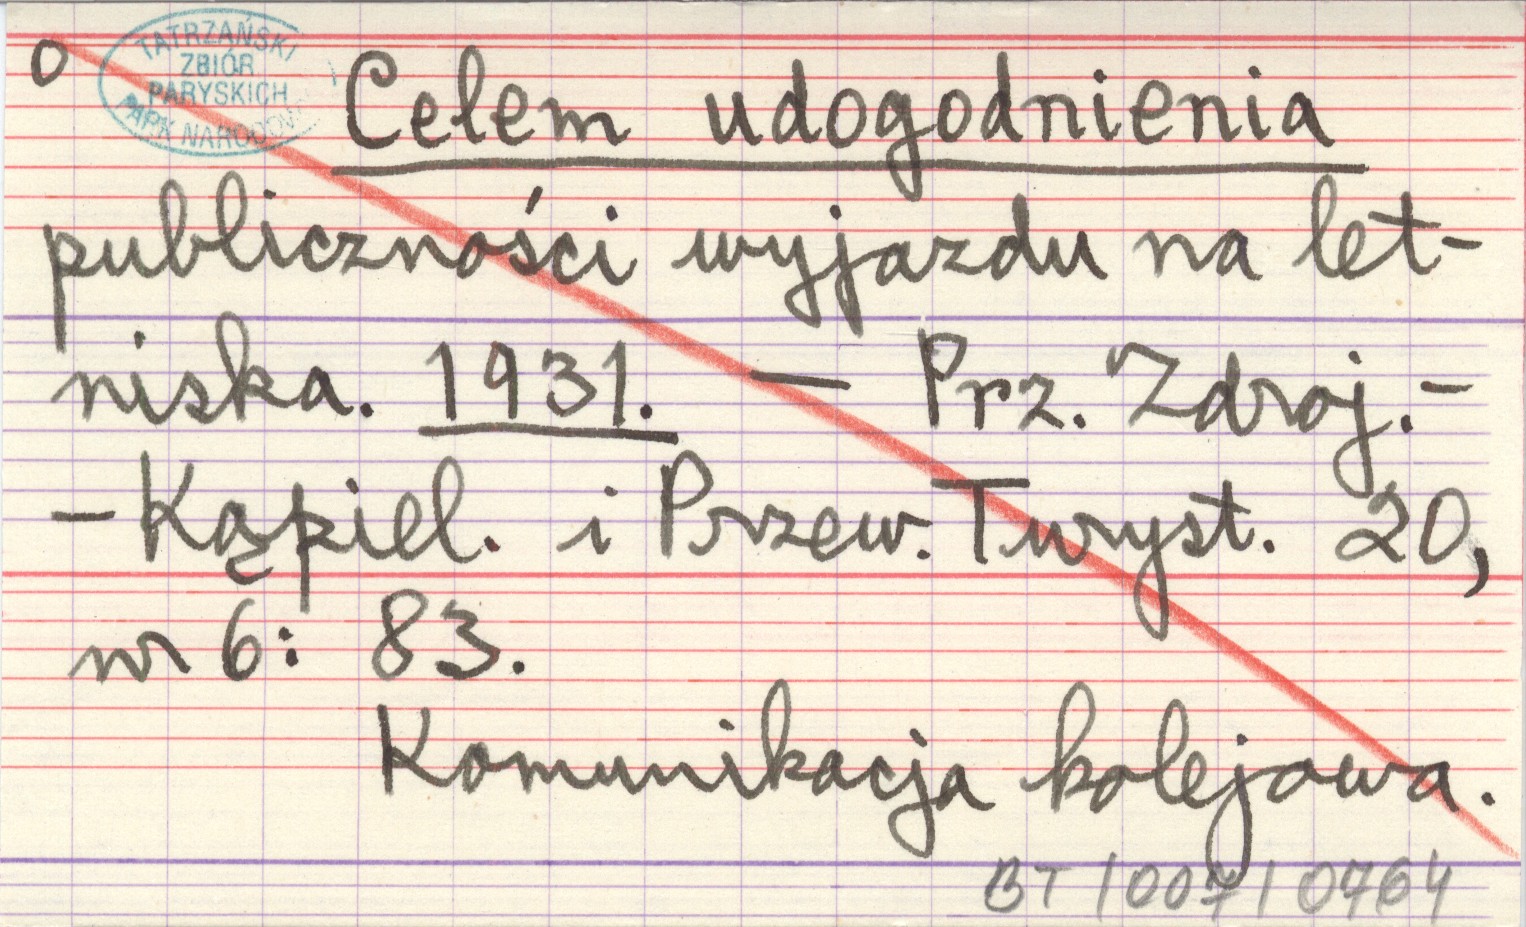 O
TATRZAŃSKI
ZBIÓR
PARYSKICH
PARK NARODOWY
Celem udogodnienia
publiczności wyjazdu na let-
niska. 1931. — Prz. Zdroj.-
-Kąpiel. i Przew. Turyst. 20,
nr 6: 83.
Komunikacja kolejowa.
BT/007/0764